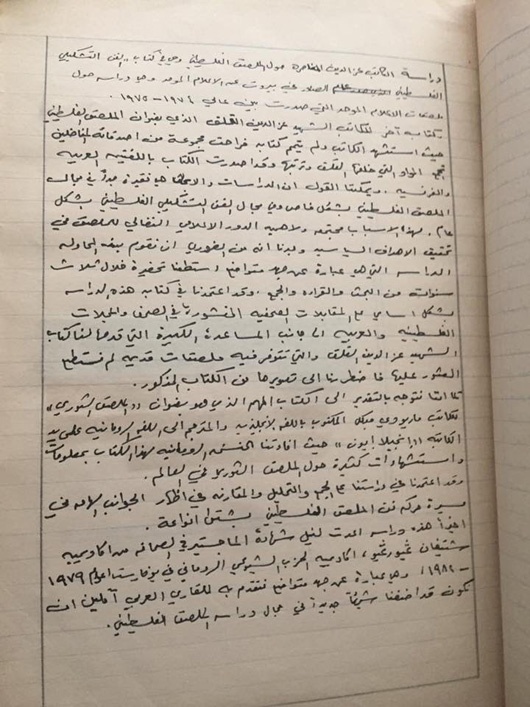 دراسة الكاتب عز الدين المناصرة حول الملصق الفلسطيني وهي في كتاب « الفن التشكيلي
الفلسطيني الصادر في بيروت عن الاعلام الموحد وهي دراسه حول
ملصقات الاعلام الموحد التي صدرت بين عامي ١٩٧٤ - ١٩٧٥ .
كتاب آخر للكاتب الشهيد عز الدين القلق الذي بعنوان الملصق الفلسطيني
حيث استشهد الكاتب ولم يتمم كتابه فراحت مجموعة من اصدقائه المناضلين
بجمع المواد التي خلفها القلق وترتيبها وقد اصدرت الكتاب باللغتين العربيه
والفرنسيه . ويمكننا القول ان الدراسات والابحاث هي فقيرة جداً في مجالب
الملصق الفلسطيني بشكل خاص وفي مجال الفن التشكيلي الفلسطيني بشكل
عام . لهذه الاسباب مجتمعه ولاهمية الدور الاعلامي النضالي للملصق في
تحقيق الاهداف السياسيه وجدنا انه من الضروري ان نقوم بهذه المحاوله
الدراسه التي هي عبارة عن جهد متواضع استطعنا تحضيرة خلال ثلاث
سنوات من البحث والقراءه والجمع . وقد اعتمدنا في كتابه هذه الدراسه
بشكل اساسي على المقابلات الصحفيه المنشورة في الصحف والمجلات
الفلسطينيه والعربيه الى جانب المساعدة الكبيرة التي قدمها لنا كتاب
الشهيد عز الدين القلق والتي تتوفر فيه ملصقات قديمه لم نستطع
العثور عليها فاضطرنا الى تصويرها من الكتاب المذكور .
كما اننا نتوجه بالتقدير الى الكتاب المهم الذي هو بعنوان « الملصق الثوري »
للكاتب ماريو دي ميكلي المكتوب باللغه الايطاليه والمترجم الى اللغه الرومانيه على يد
الكاتبه « انجيلا ايون » حيث افادتنا النسخه الرومانيه لهذا الكتاب بمعلومات
واستشهادات كثيرة حول الملصق الثوري في العالم .
وقد اعتمدنا في دراستنا على الجمع والتحليل والمقارنه في اظهار الجوانب الهامه في
مسيرة حركة فن الملصق الفلسطيني بشتى انواعة .
اخيراً هذه دراسه اعدت لنيل شهادة الماجستير في الصحافه من اكاديميه
شتيفان غيورغيو ، اكاديميه الحزب الشيوعي الروماني في بوخارست اعوام ١٩٧٩
- ١٩٨٢ ، وهي عبارة عن جهد متواضع نتقدم به للقارئ العربي آملين ان
نكون قد اضفنا شيئاً جديداً في مجال دراسه الملصق الفلسطيني .